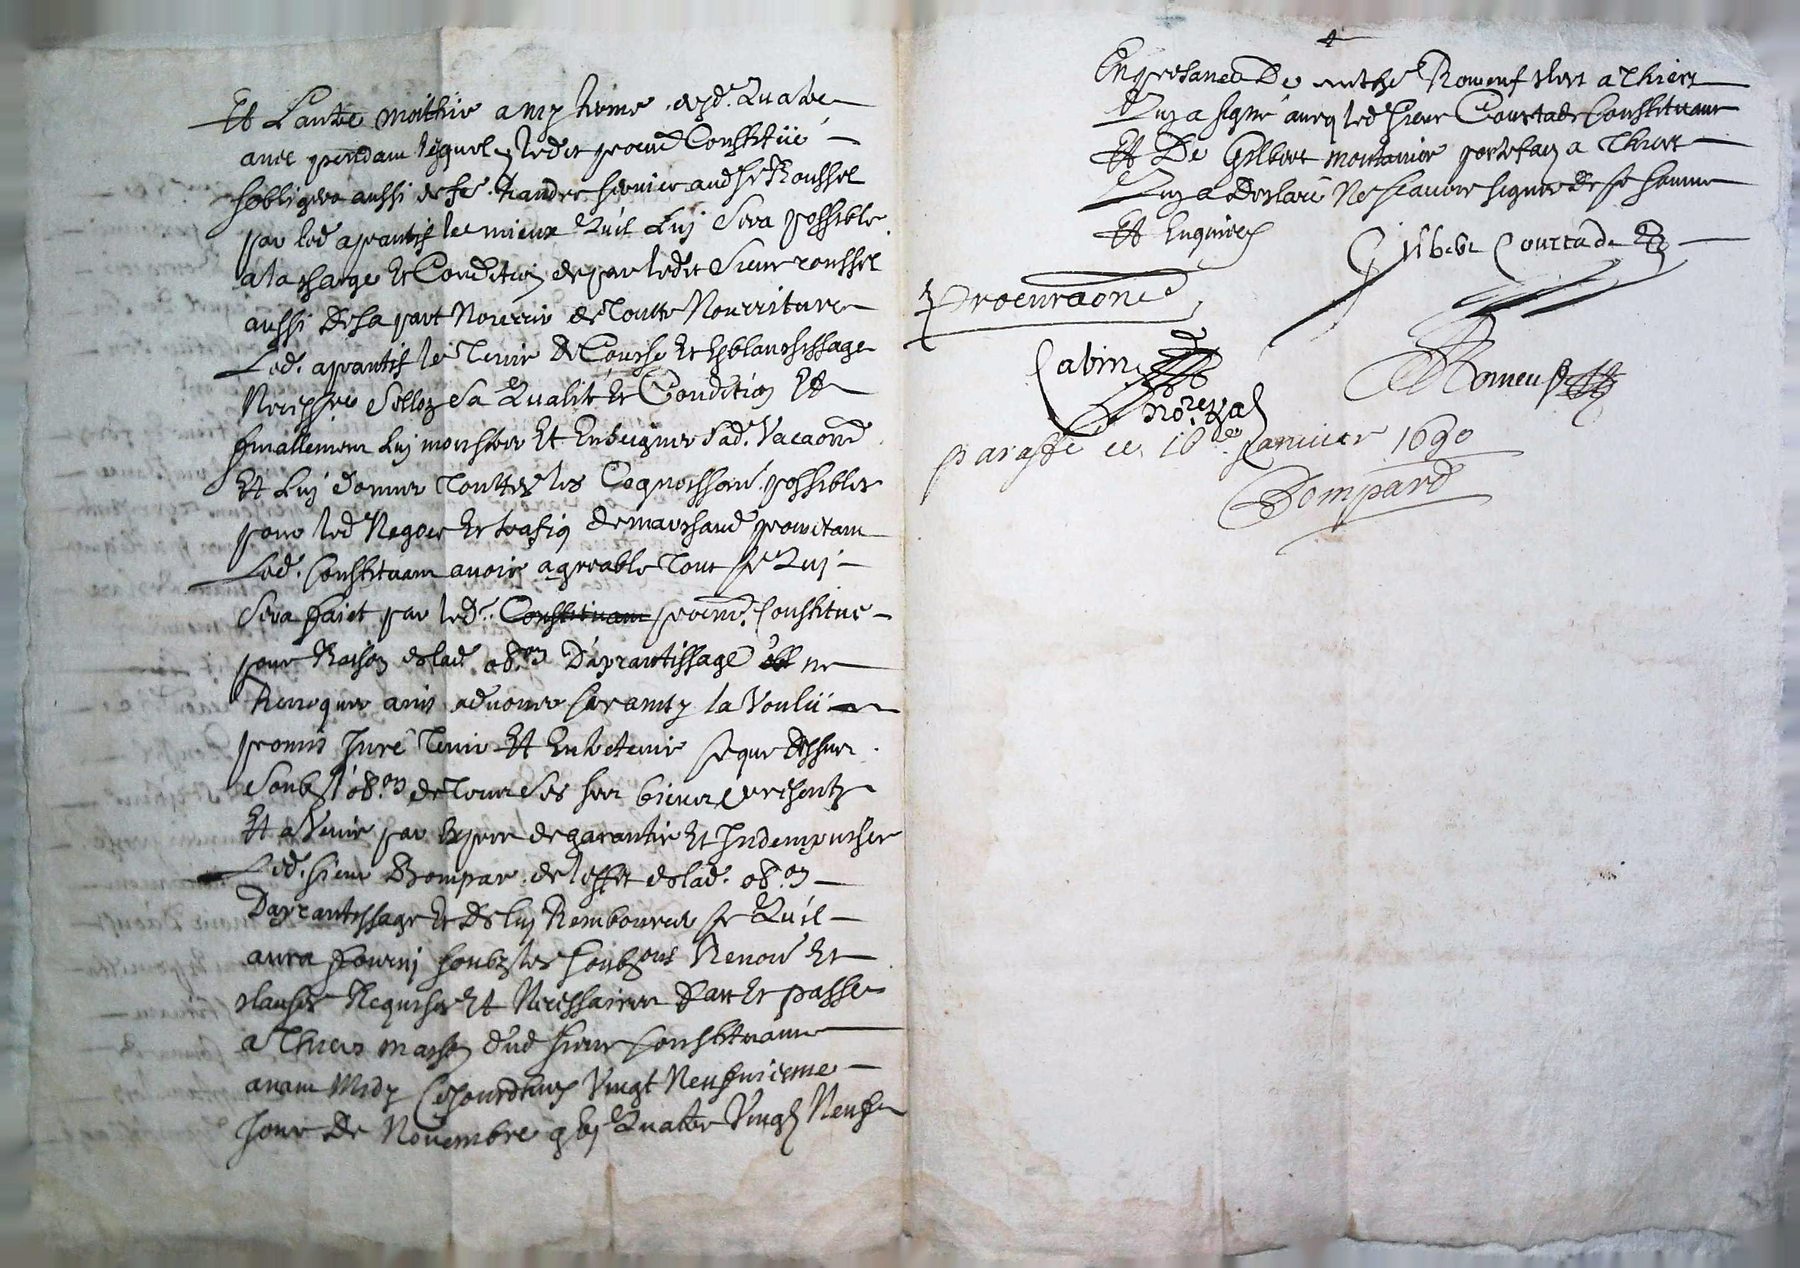 Et Lautre moithie a my terme desd. Quatre
annees pendant lequel ledit procur Constitué
sobligera aussi de fe. randre service aud Sr Roussel
par led aprantif le mieux Quil Luy Sera possible
a la charge Et Condition de par ledit Sieur roussel
aussi de sa part Nourrir de Toutte Nourriture
Led. aprantif le Tenir de Couche Et blanchissage
Necess.re Sellon Sa Qualité Et Condition Et
finallement Luy monstrer Et Enseigner Sad. Vacaon
Et Luy donner Touttes les Cognoissan. possibles
pour led Negoce Et trafiq de marchand promettant
Led. constituant avoir agreable Tout ce Quy
Sera faict par led. Constituant procur. Constitué
pour Raison de lad. obon Daprantissage Et ne
Revoquer ains advouer la Voulu
promis Juré Tenir Et Entretenir ce que dessus
Soubz l'obon de Tous Ses biens presents
Et a Venir par Expres de garantir Et Indempniser
Led. sieur Bompar de leffet de lad. obon
Daprantissage Et de luy Rembourcer ce Quil
aura fourny soubz les soubzons Renon Et
clauses Requises Et Necessaires Fait Et passé
a Thiers maison dud sieur constituant
avant Midy Cejourdhuy Vingt Neufvieme
Jour de Novembre gbj Quattre Vingt Neuf
4
En presance De Romeuf clerc a Thiers
Quy a signé avecq led sieur Courtade Constituant
Et De Gilbert portefaix a Thiers
Quy a declaré Ne scavoir signer de ce somme
Et Enquis
Courtade
Procuraon
Romeuf
Nore Ral
paraffé ce 16 Janvier 1690
Bompard